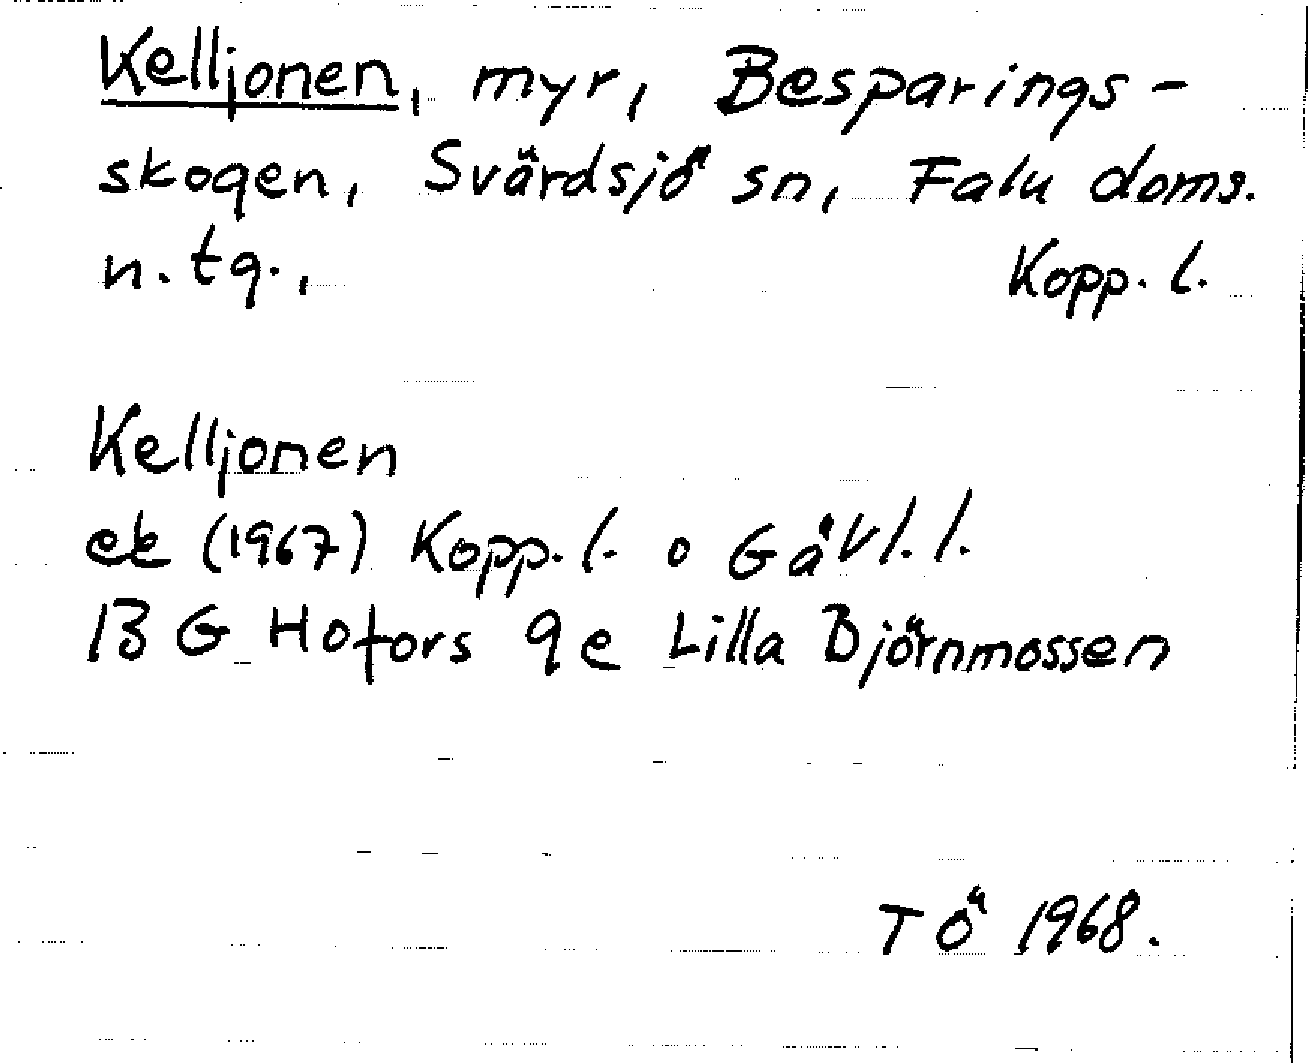 Kelljonen, myr, Besparings-
skogen, Svärdsjö sn, Falu doms.
n. tg., Kopp. l.
Kelljonen
ek (1967) Kopp. l. o Gävl. l.
13 G Hofors 9 e Lilla Björnmossen
TÖ 1968.